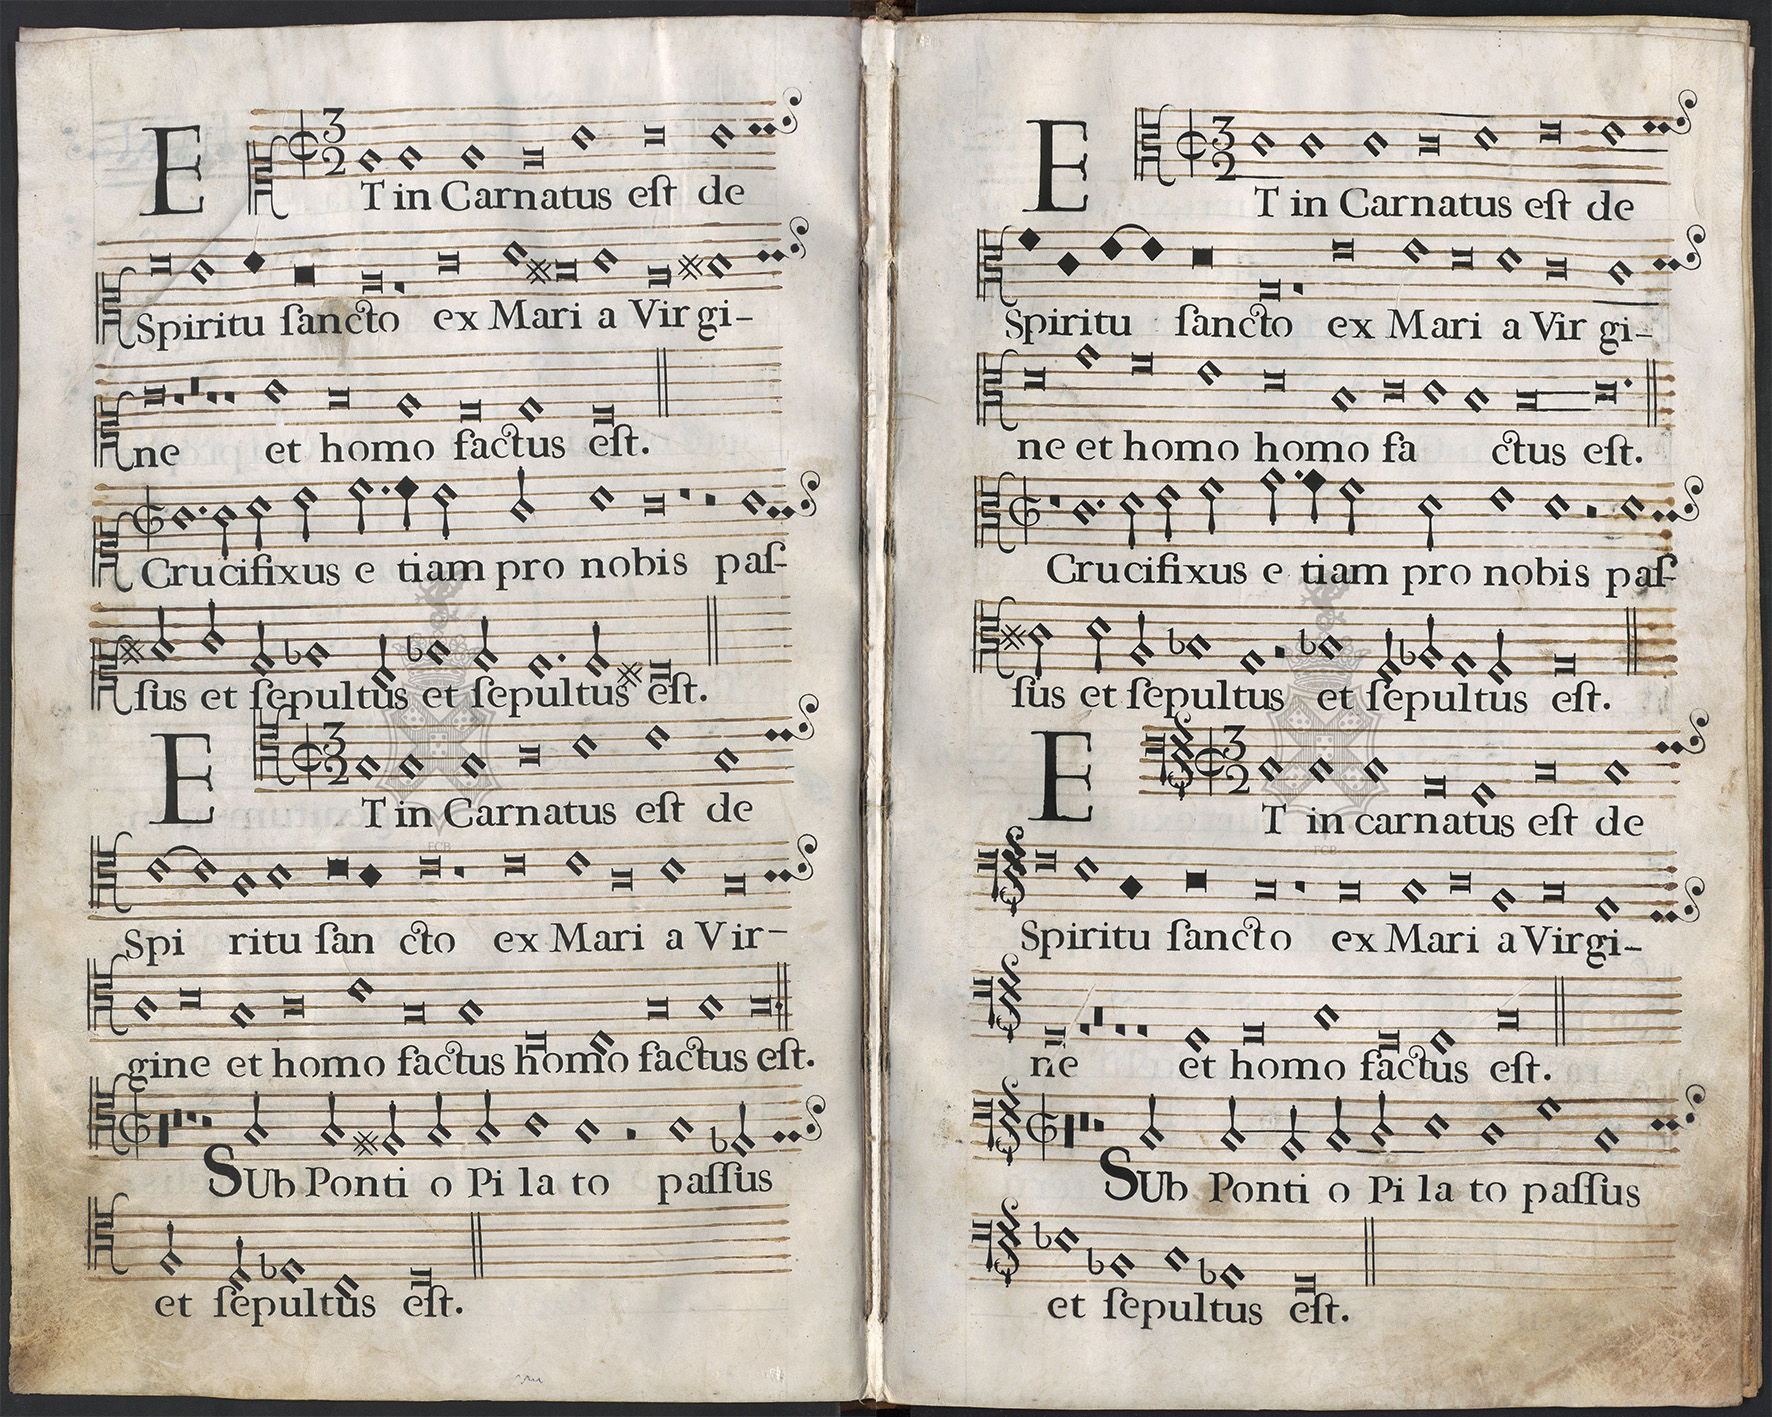 ET in Carnatus eſt de
Spiritu ſancto ex Mari a Vir gi-
ne et homo factus eſt.
Crucifixus e tiam pro nobis paſ-
ſus et ſepultus et ſepultus eſt.
ET in Carnatus eſt de
Spi ritu ſan cto ex Mari a Vir-
gine et homo factus homo factus eſt.
SUb Ponti o Pi la to paſſus
et ſepultus eſt.
ET in Carnatus eſt de
Spiritu ſancto ex Mari a Vir gi-
ne et homo homo fa ctus eſt.
Crucifixus e tiam pro nobis paſ-
ſus et ſepultus et ſepultus eſt.
ET in carnatus eſt de
Spiritu ſancto ex Mari a Virgi-
ne et homo factus eſt.
SUb Ponti o Pi la to paſſus
et ſepultus eſt.